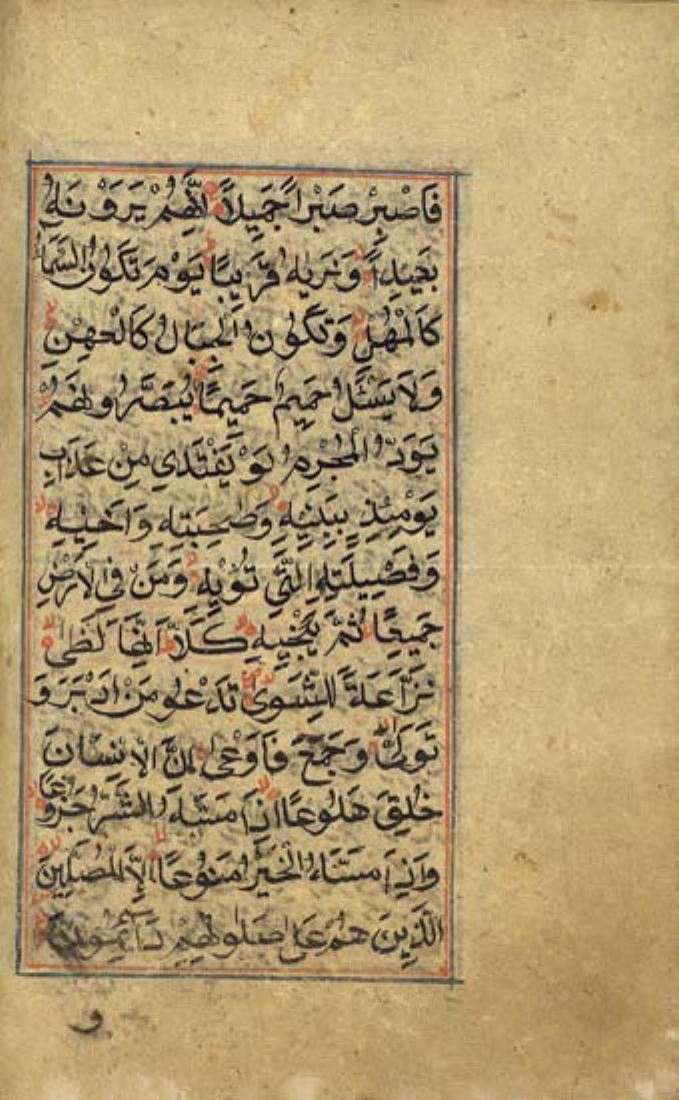 فَاصْبِرْ صَبْرًا جَمِيلًا إِنَّهُمْ يَرَوْنَهُ
بَعِيدًا وَنَرٰيهُ قَرِيبًا يَوْمَ تَكُونُ السَّمَاءُ
كَالْمُهْلِ وَتَكُونُ الْجِبَالُ كَالْعِهْنِ
وَلَا يَسْئَلُ حَمِيمٌ حَمِيمًا يُبَصَّرُونَهُمْ
يَوَدُّ الْمُجْرِمُ لَوْ يَفْتَدِي مِنْ عَذَابِ
يَوْمِئِذٍ بِبَنِيهِ وَصَاحِبَتِهِ وَاَخِيهِ
وَفَصِيلَتِهِ الَّتِي تُؤْيهِ وَمَنْ فِي الْاَرْضِ
جَمِيعًا ثُمَّ يُنْجِيهِ كَلَّا اِنَّهَا لَظٰى
نَزَّاعَةً لِلشَّوٰى تَدْعُوا مَنْ اَدْبَرَ وَ
تَوَلّٰى وَجَمَعَ فَاَوْعٰى اِنَّ الْاِنْسَانَ
خُلِقَ هَلُوعًا اِذَا مَسَّهُ الشَّرُّ جَزُوعًا
وَاِذَا مَسَّهُ الْخَيْرُ مَنُوعًا اِلَّا الْمُصَلِّينَ
الَّذِينَ هُمْ عَلٰى صَلٰوتِهِمْ دَائِمُونَ
و